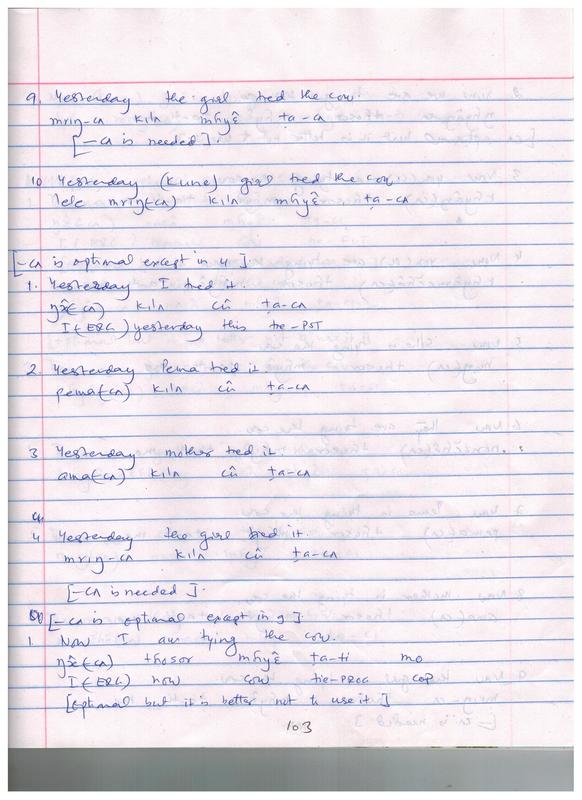 9. Yesterday the girl tied the cow.
mriŋ-cʌ kılʌ mɦyɛ̂ ṭa-cʌ
[-cʌ is needed].
10 Yesterday (Kune) girl tied the cow.
lele mriŋ(-cʌ) kılʌ mɦyɛ̂ ṭa-cʌ
[-cʌ is optimal except in 4].
1. Yesterday I tied it.
kılʌ cû ṭa-cʌ
I(-ERG) yesterday this tie-PST
2. Yesterday Pema tied it.
pema(-cʌ) kılʌ cû ṭa-cʌ
3 Yesterday mother tied it.
ama(-cʌ) kılʌ cû ṭa-cʌ
4 Yesterday the girl tied it.
mriŋ-cʌ kılʌ cû ṭa-cʌ
[-cʌ is needed].
[-cʌ is optimal except in 9].
1. Now I am tying the cow.
thosor mɦyɛ̂ ṭa-ti mo
I(-ERG) now cow tie-PROG COP
[optimal but it is better not to use it]
103